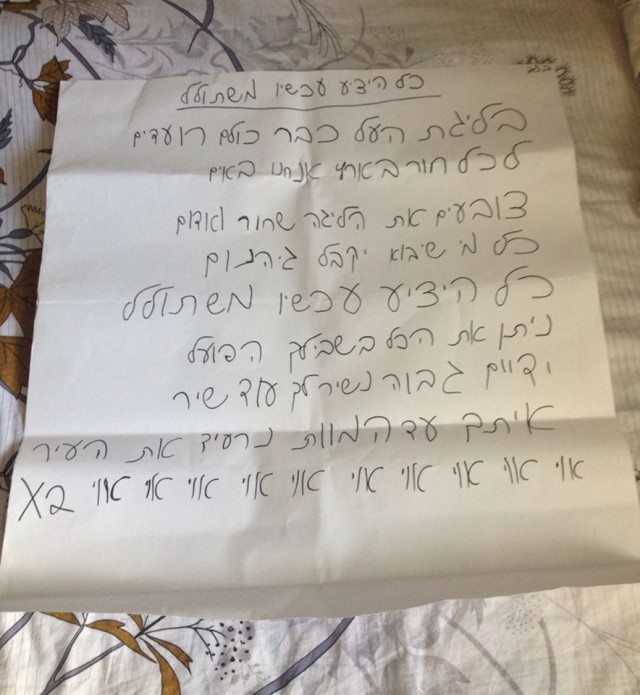 כל היצע עכשיו משתולל
בליגת העל כבר כולם רועדים
לכל חור בארץ אנחנו באים
צובעים את הליגה שחור ואדום
כל מי שיבוא יקבל גיהנום
כל היציע עכשיו משתולל
ניתן את הכל בשבילך הפועל
ווליום גבוה נשיר לך עוד שיר
איתך עד המוות נרעיד את העיר
אוי אוי אוי אוי אוי אוי אוי אוי אוי אוי X2